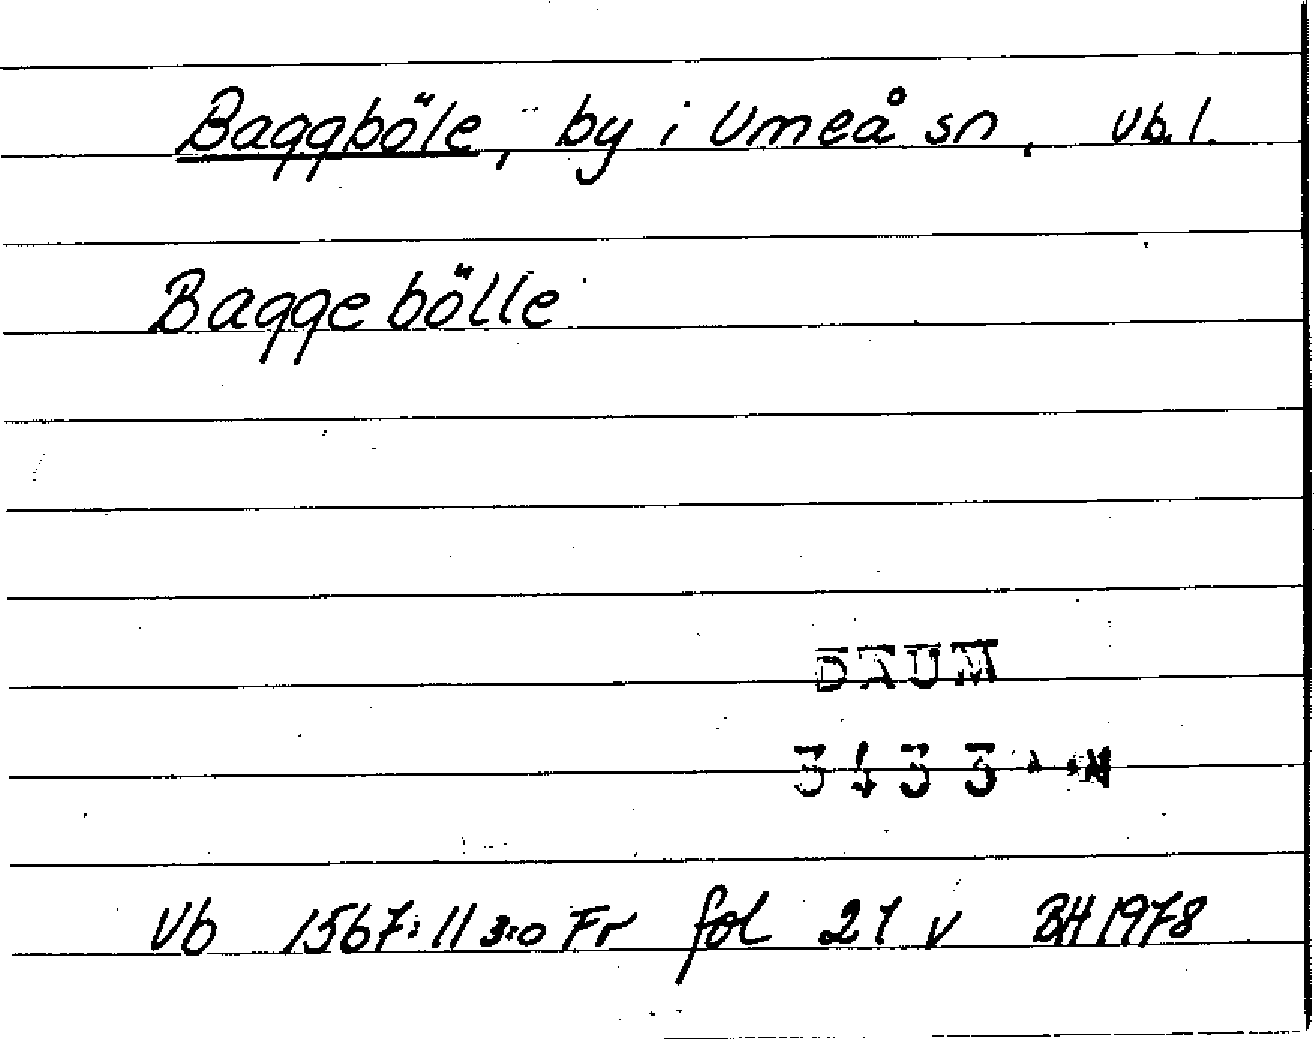 Baggböle, by i Umeå sn, Vb. l.
Baggebölle
DAUM
3433
Vb 1567:11 3:o Fr fol 21 v BH 1978